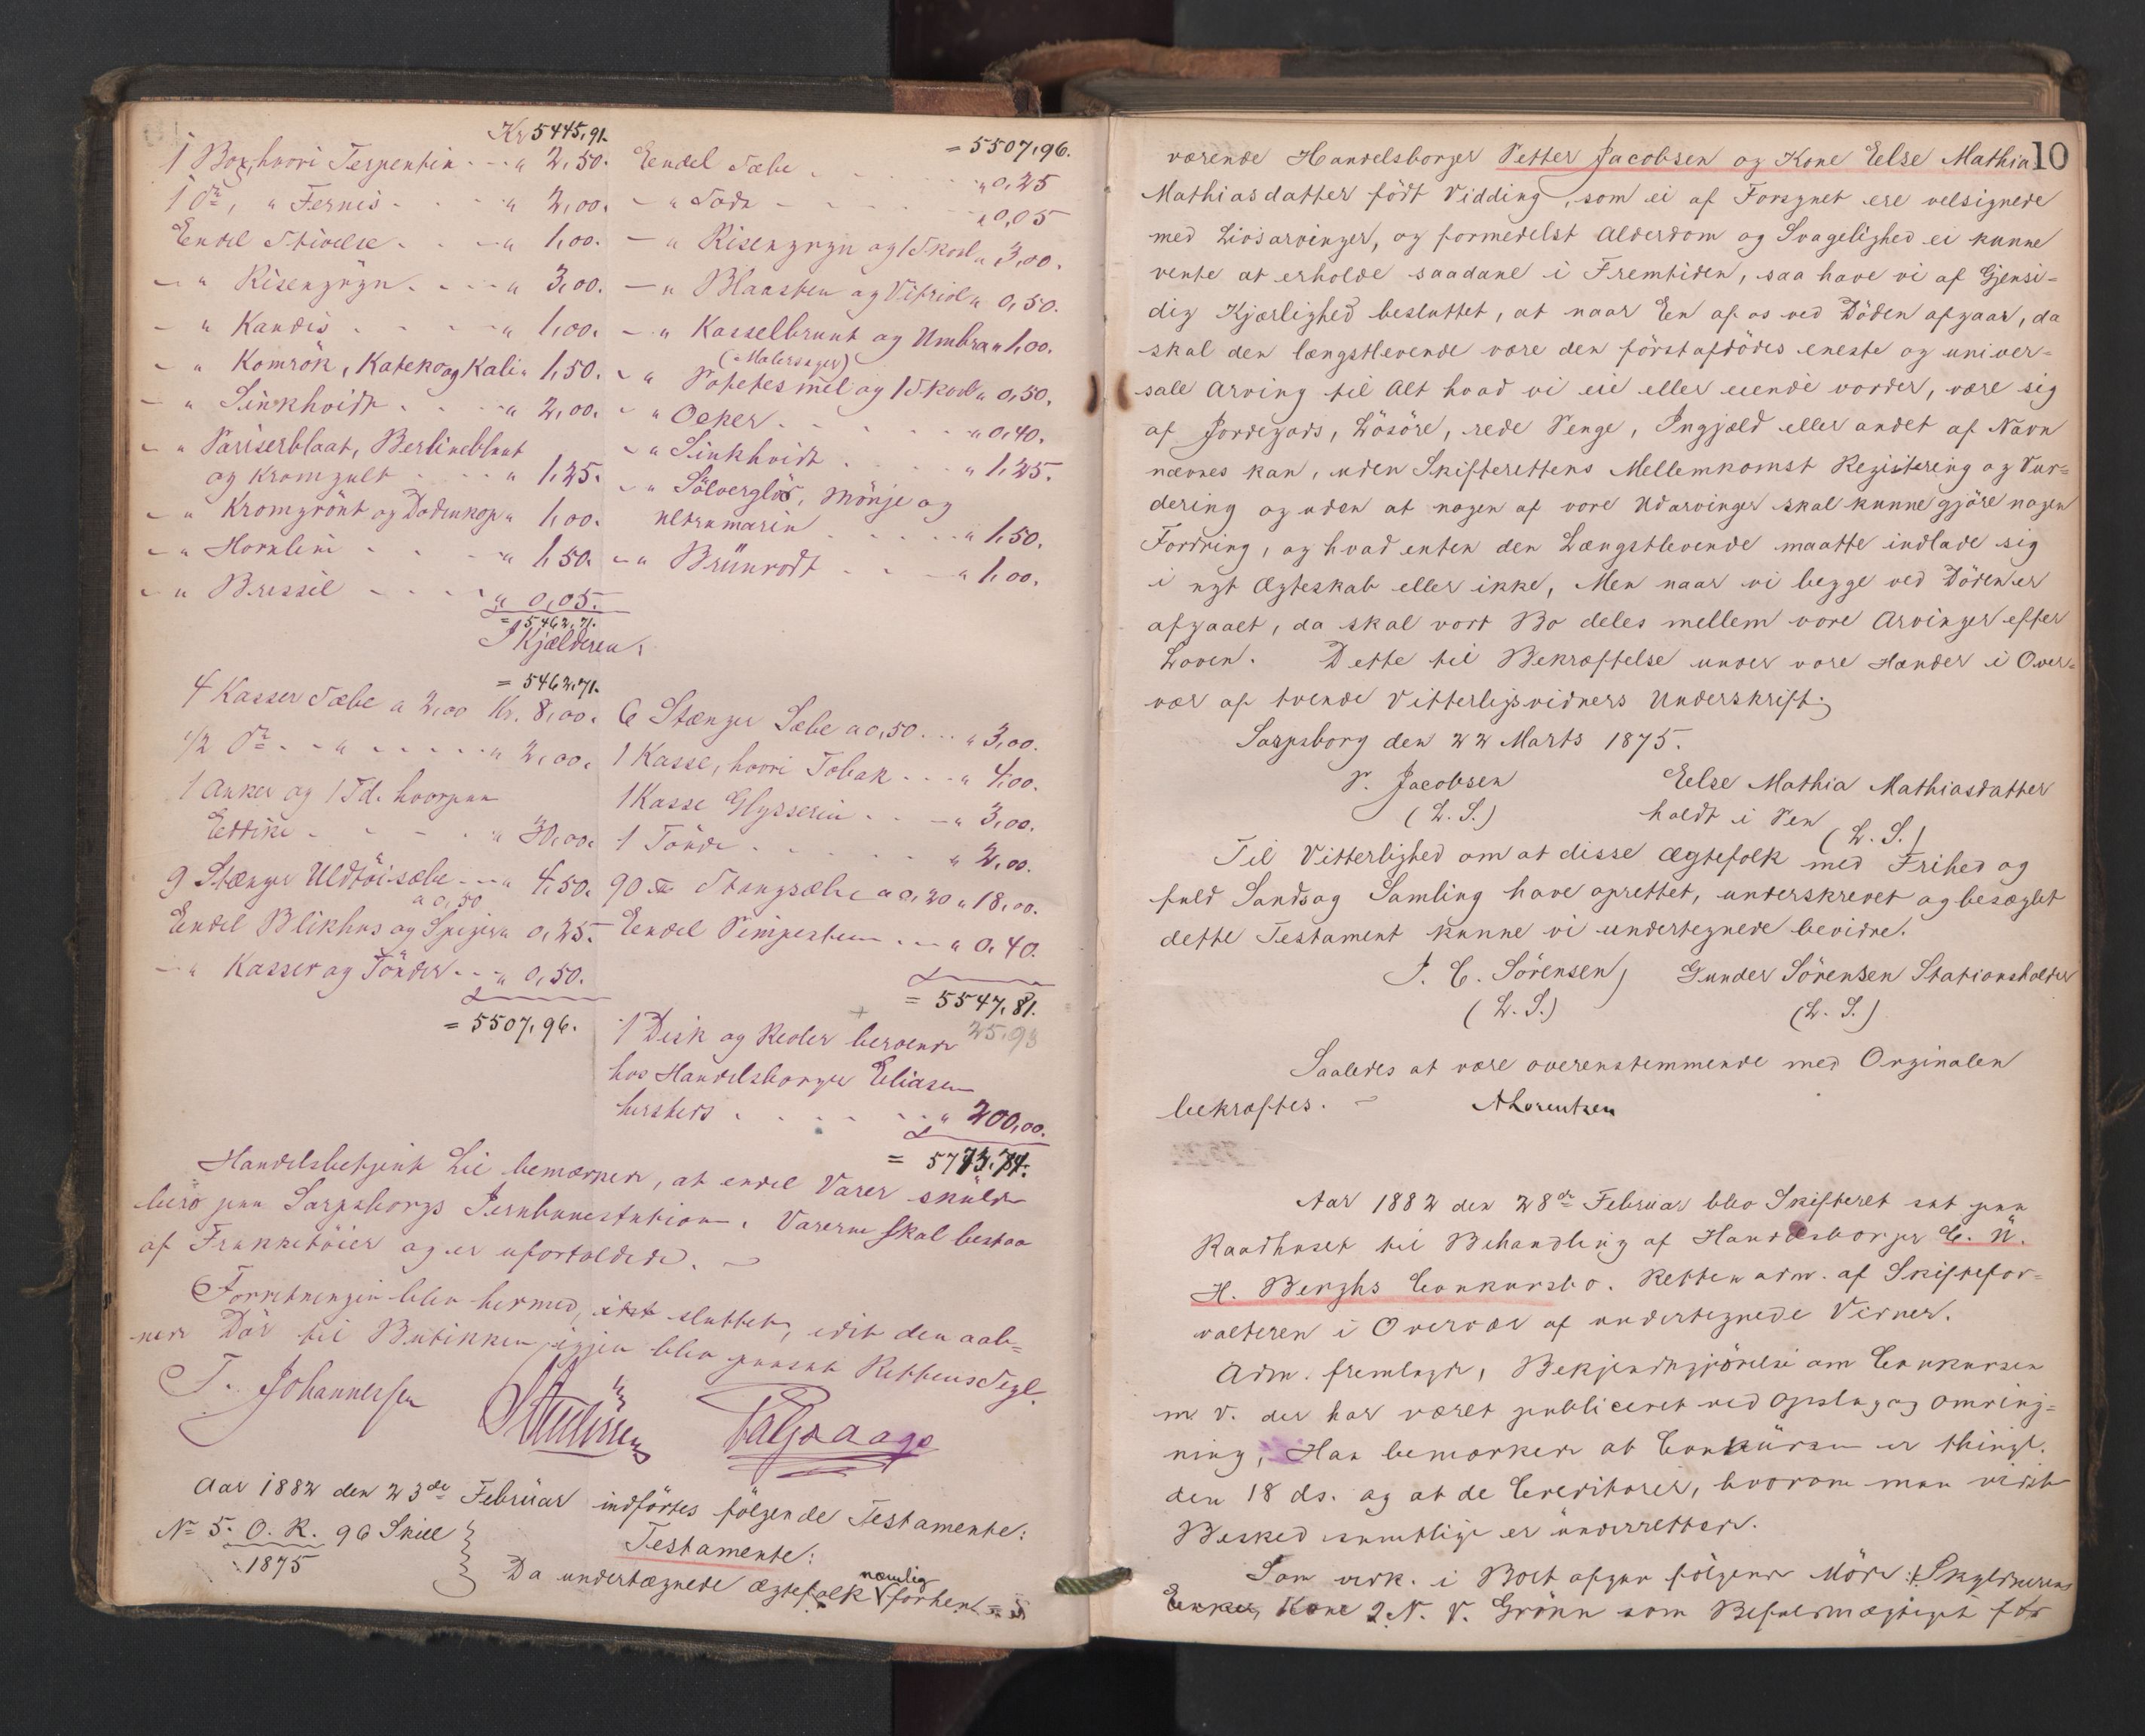 Kr 5445,91.
1 Box, hvori Terpentin - - " 2,50.
1 do, " Fernis - - - " 2,00.
Eendel Stivelse - - - " 1,00.
- " Risengryn - - - " 3,00.
- " Kandis - - - - " 1,00.
- " Komrök, Kateko og Kali " 1,50.
- " Sinkhvidt - - - " 2,00.
- " Pariserblaat, Berlinerblaat
og Kromgult - - - " 1,25.
- " Kromgrönt og Dodenkop " 1,00.
- " Hornlim - - - " 1,50.
- " Bressil - - - - " 0,05.
= 5462,71.
= 5507,96.
Eendel Sæbe - - - - " 0,25
- " Soda - - - - " 0,05
- " Risengryn og 1 Skarl " 3,00.
- " Blaasten og Vitriol " 0,50.
- " Kasselbrunt og Umbra " 1,00.
(" Malersager)
- " Potetesmel og 1 Skarl " 0,50.
- " Ocker - - - - " 0,40.
- " Sinkhvidt - - - " 1,25.
- " Sölverglös, Mönje og
ultramarin - - - - " 1,50.
- " Brünrodt - - - " 1,00.
I Kjælderen:
= 5462,71.
4 Kasser Sæbe a 2,00 Kr. 8,00.
1/2 do - - " - - - - - " 2,00.
1 Anker og 1 Td. hvorpaa
Eddike - - - - " 30,00.
9 Stænger Uldtöisæbe - - " 4,50.
a 0,50
Eendel Blikhus og Spiger " 0,25.
- " Kasser og Tönder - - " 0,50.
= 5507,96.
6 Stænger Sæbe a 0,50 - - " 3,00.
1 Kasse, hvori Tobak - - - " 4,00.
1 Kasse Glysserin - - - " 3,00.
1 Tönde - - - - - " 2,00.
90 ℔ Stangsæbe a 0,20 " 18,00.
Eendel Pimpesten - - - " 0,40.
= 5547,81.
25,93
1 Disk og Reoler beroende
hos Handelsborger Eliasen
hersteds - - - - - - " 200,00.
= 5773,74.
Handelsbetjent Lie bemærkede, at endel Varer skulde
bero paa Sarpsborgs Jernbanestation. Varerne skal bestaa
af Frakketöier og er ufortoldede. -
Forretningen blev hermed, sluttet, idet den aab=
nede Dör til Butikken igjen blev paasat Rettens Segl.
T. Johannessen
Aar 1882 den 23de Februar indförtes fölgende Testamente:
No 5. O. R. 96 Skill
1875
Testamente:
Da undertægnede Ægtefolk næmlig forhen=
10
værende Handelsborger Petter Jacobsen og Kone Eelse Mathia
Mathiasdatter födt Vidding, som ei af Forsynet ere velsignede
med Livsarvinger, og formedelst Alderdom og Svagelighed ei kunne
vente at erholde saadane i Fremtiden, saa have vi af Gjensi=
dig Kjærlighed besluttet, at naar Een af os ved Döden afgaar, da
skal den længstlevende være den först afdödes eneste og univer=
sale Arving til Alt hvad vi eie eller eiende vorder, være sig
af Jordegods, Lösöre, rede Penge, Ingjæld eller andet af Navn
nævnes kan, uden Skifterettens Mellemkomst Registering og Vur=
dering og uden at nogen af vore Udarvinger skal kunne gjöre nogen
Fordring, og hvad enten den Længstlevende maatte indlade sig
i nyt Ægteskab eller ikke, Men naar vi begge ved Döden er
afgaaet, da skal vort Bo deles mellem vore Arvinger efter
Loven. Dette til Bekræftelse under vore Hænder i Over=
vær af tvende Vitterligsvidners Underskrift;
Sarpsborg den 22 Marts 1875.
P. Jacobsen Eelse Mathia Mathiasdatter
(L. S.) holdt i Pen (L. S.)
Til Vitterlighed om at disse Ægtefolk med Frihed og
fuld Sandsog Samling have oprettet, underskrevet og besæglet
dette Testament kunne vi undertegnede bevidne.
J. C. Sörensen, Gunder Sörensen Stationsholder
(L. S.) (L. S.)
Saaledes at være overenstemmende med Orginalen
bekræftes. - ALorentzen
Aar 1882 den 28de Februar blev Skifteret sat paa
Raadhuset til Behandling af Handelsborger C. N.
H. Berghs Conkursbo. Retten adm. af Skiftefor=
valteren i Overvær af undertegnede Vidner.
Adm. fremlagde, Bekjendtgjörelse om Conkursen
m. V. der har været publiceret ved Opslag og Omring=
ning, Han bemærkede at Conkürsen er thingl.
den 18 ds. og at de Creditorer, hvorom man vidste
Besked samtlige er underrettede.
Som vedk. i Boet afgav fölgende Möde: Skyldnerens
Kone J. N. V. Grönn som Befuldmægtiget for